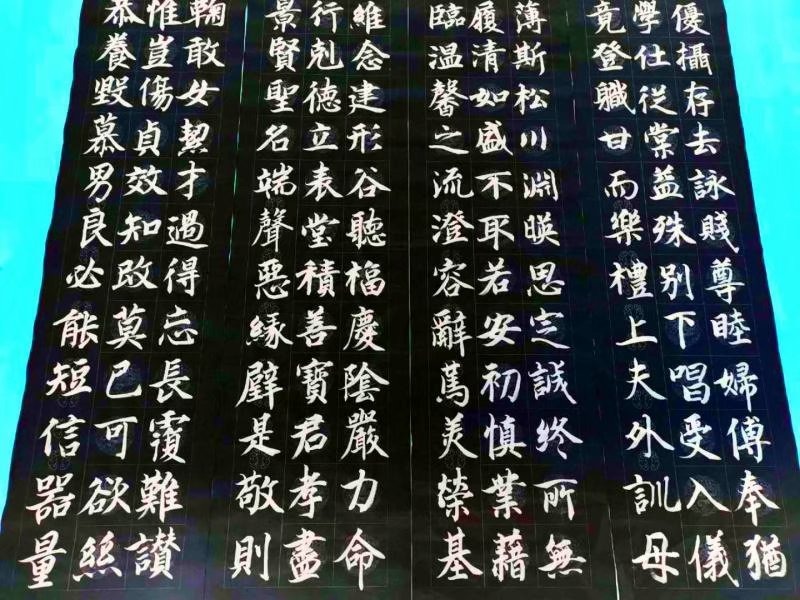 恭惟鞠
養豈敢
毀傷女
慕貞絜
男效才
良知過
必改得
能莫忘
短已長
信可覆
器欲難
量絲讚
景行維
賢剋念
聖德建
名立形
端表谷
聲堂聽
惡積福
緣善慶
璧寶陰
是君嚴
敬孝力
則盡命
臨履薄
温清斯
馨如松
之盛川
流不淵
澄取暎
容若思
辭安定
篤初誠
美慎終
榮業所
基藉無
竟學優
登仕攝
職從存
甘棠去
而益詠
樂殊賤
禮别尊
上下睦
夫唱婦
外受傅
訓入奉
母儀猶